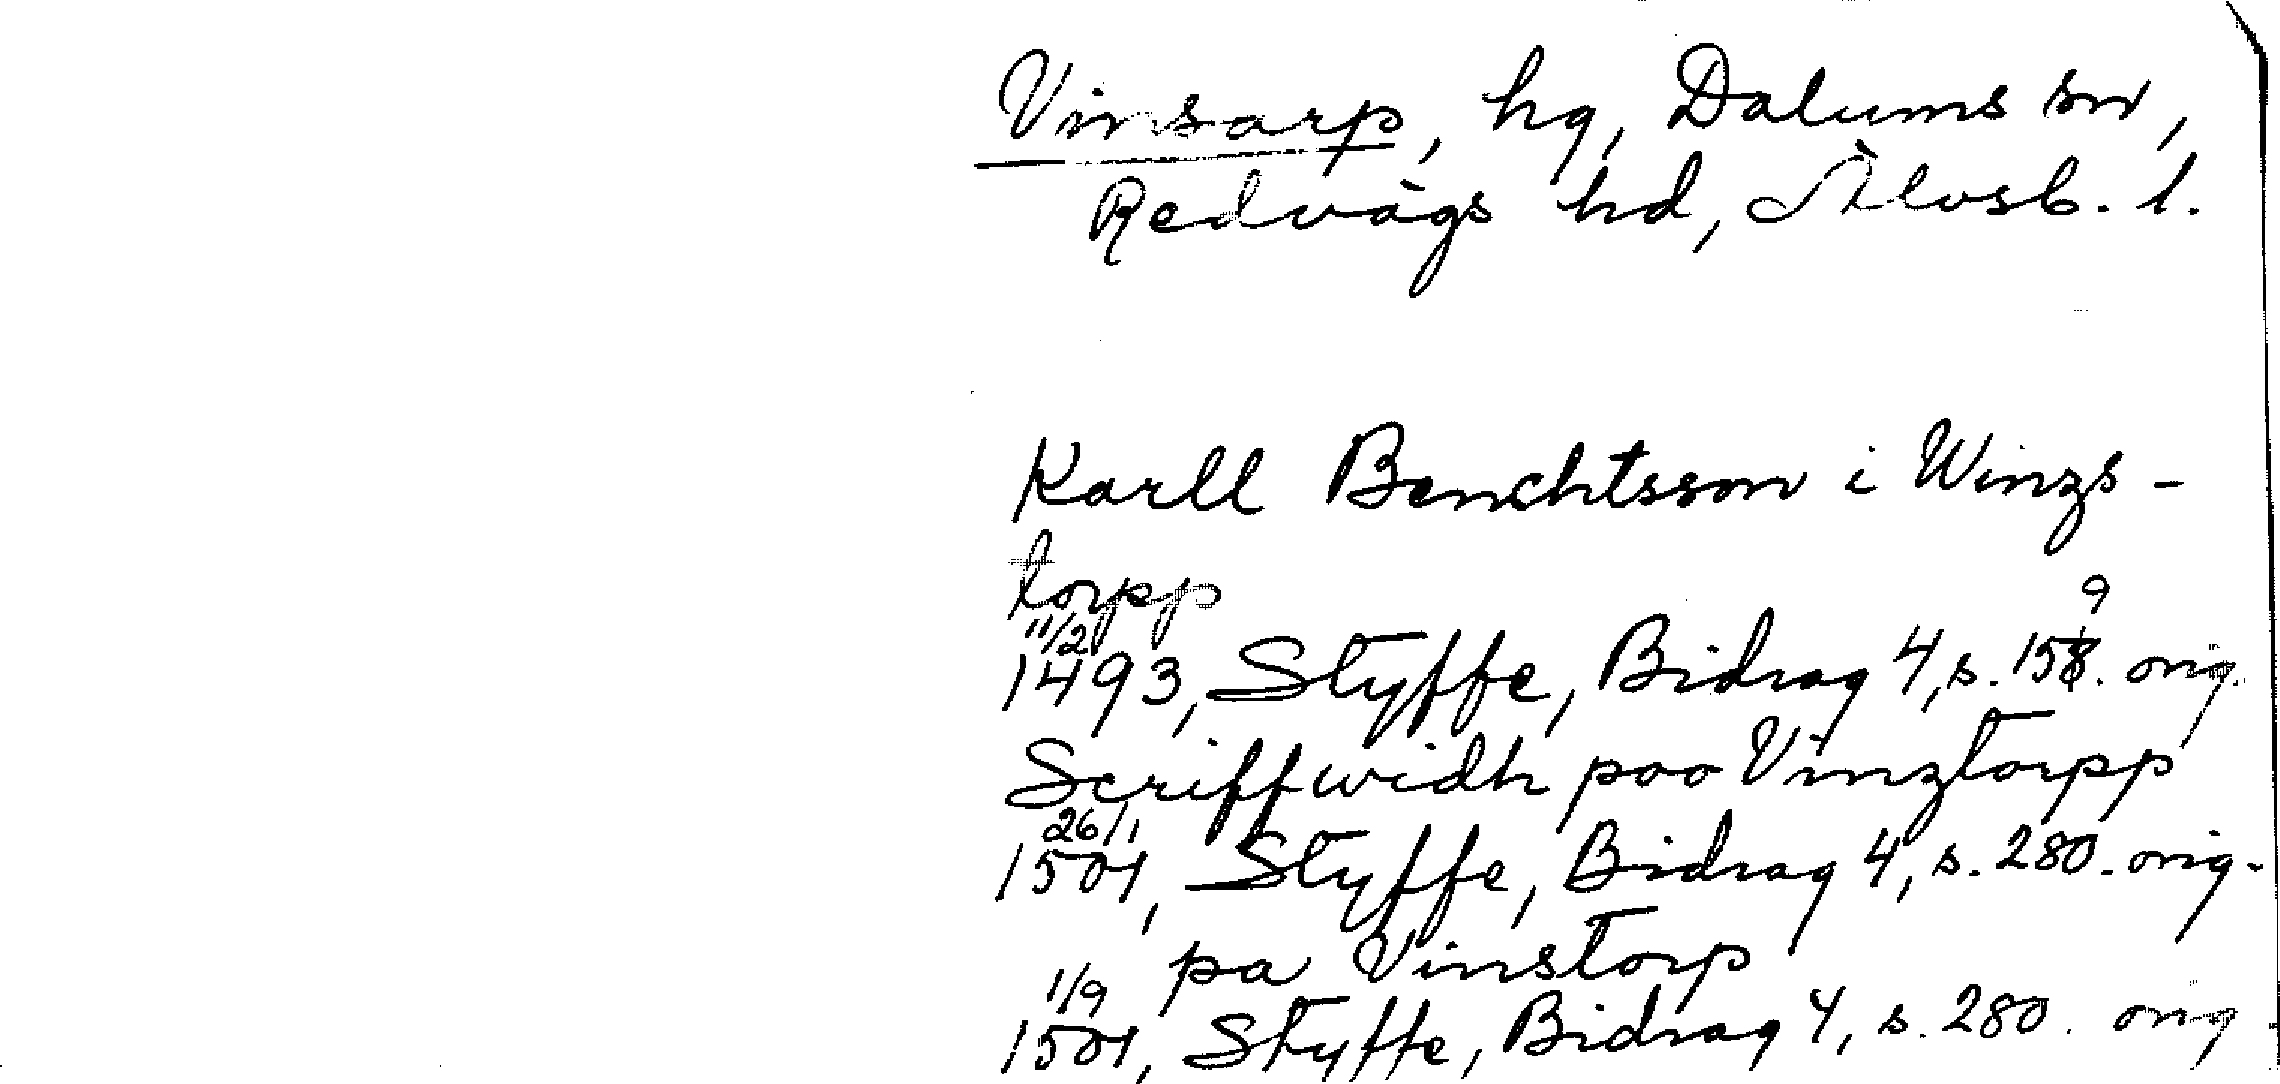 Vinsarp, hg, Dalums sn,
Redvägs hd, Älvsb. l.
Karll Benchtsson i Winzs-
torpp
11/2
1493, Styffe, Bidrag 4, s. 159. orig.
Scriffwidh poo Vinztorpp
26/1
1501, Styffe, Bidrag 4, s. 280. orig.
pa Vinstorp
1/9
1501, Styffe, Bidrag 4, s. 280. orig.